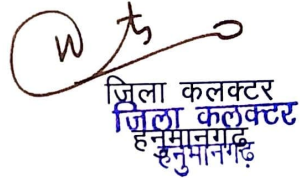 जिला कलक्टर
जिला कलक्टर
हनुमानगढ़
हनुमानगढ़